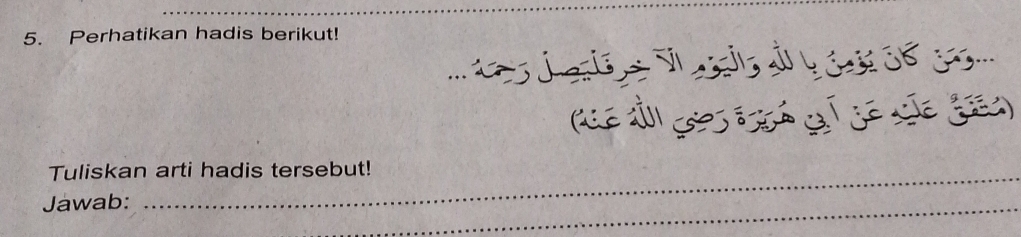 5. Perhatikan hadis berikut!
...وَمَنْ كَانَ يُؤْمِنُ بِا للهِ وَالْيَوْمِ الْآ خِرِ فَلْيَصِلْ رَحِمَهُ ...
(مُتَّفَقٌ عَلَيْهِ عَنْ أَبِي هُرَيْرَةَ رَضِيَ اللهُ عَنْهُ)
Tuliskan arti hadis tersebut!
Jawab: